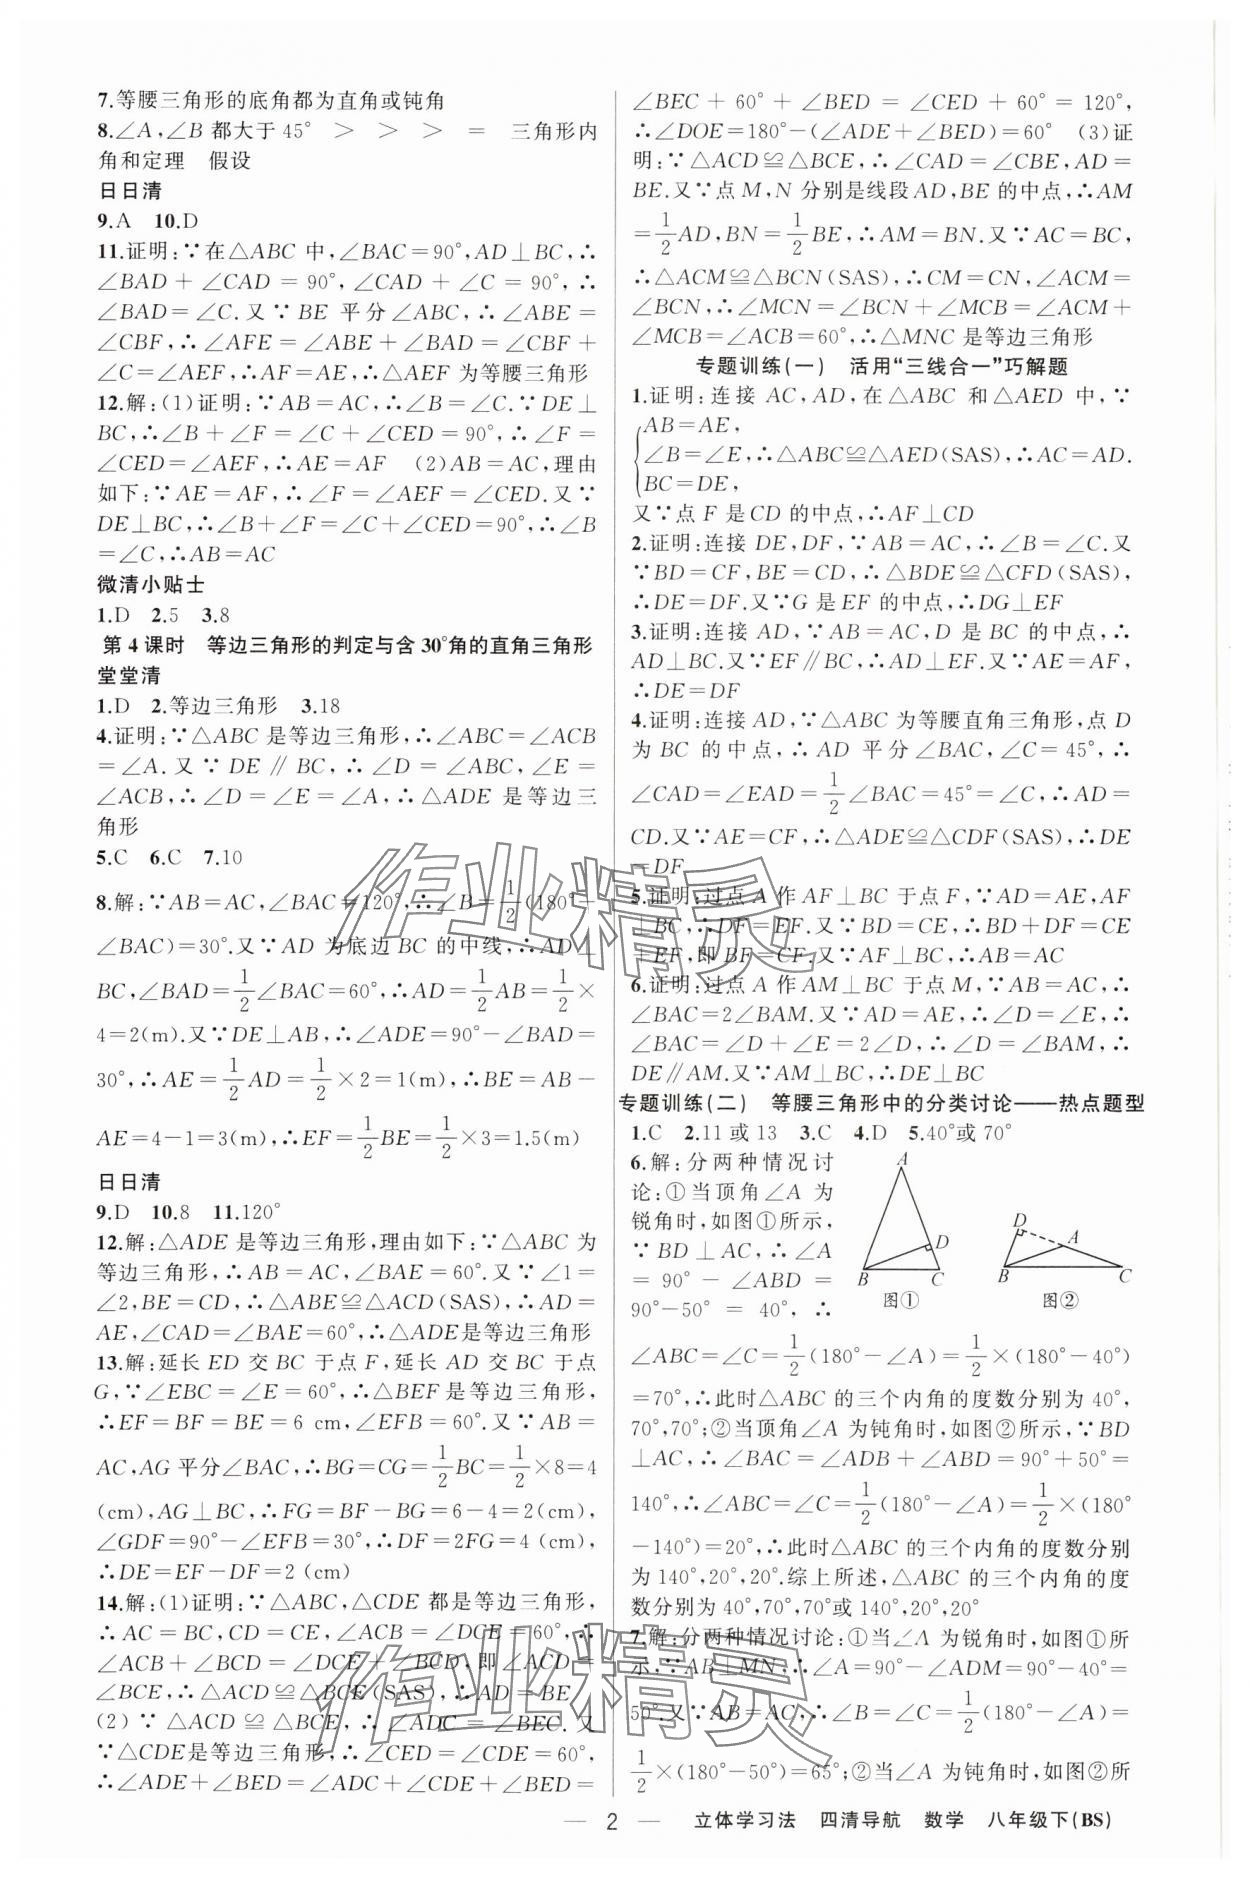 7.等腰三角形的底角都为直角或钝角
8.∠A,∠B都大于45° > > > = 三角形内
角和定理 假设
日日清
9.A 10.D
11.证明:∵在△ABC中,∠BAC=90°,AD⊥BC,∴
∠BAD+∠CAD=90°,∠CAD+∠C=90°,∴
∠BAD=∠C.又∵BE平分∠ABC,∴∠ABE=
∠CBF,∴∠AFE=∠ABE+∠BAD=∠CBF+
∠C=∠AEF,∴AF=AE,∴△AEF为等腰三角形
12.解:(1)证明:∵AB=AC,∴∠B=∠C.∵DE⊥
BC,∴∠B+∠F=∠C+∠CED=90°,∴∠F=
∠CED=∠AEF,∴AE=AF (2)AB=AC,理由
如下:∵AE=AF,∴∠F=∠AEF=∠CED.又∵
DE⊥BC,∴∠B+∠F=∠C+∠CED=90°,∴∠B
=∠C,∴AB=AC
微清小贴士
1.D 2.5 3.8
第4课时 等边三角形的判定与含30°角的直角三角形
堂堂清
1.D 2.等边三角形 3.18
4.证明:∵△ABC是等边三角形,∴∠ABC=∠ACB
=∠A.又∵DE∥BC,∴∠D=∠ABC,∠E=
∠ACB,∴∠D=∠E=∠A,∴△ADE是等边三
角形
5.C 6.C 7.10
8.解:∵AB=AC,∠BAC=120°,∴∠B=1/2(180°-
∠BAC)=30°.又∵AD为底边BC的中线,∴AD⊥
BC,∠BAD=1/2∠BAC=60°,∴AD=1/2AB=1/2×
4=2(m).又∵DE⊥AB,∴∠ADE=90°-∠BAD=
30°,∴AE=1/2AD=1/2×2=1(m),∴BE=AB-
AE=4-1=3(m),∴EF=1/2BE=1/2×3=1.5(m)
日日清
9.D 10.8 11.120°
12.解:△ADE是等边三角形,理由如下:∵△ABC为
等边三角形,∴AB=AC,∠BAE=60°.又∵∠1=
∠2,BE=CD,∴△ABE≌△ACD(SAS),∴AD=
AE,∠CAD=∠BAE=60°,∴△ADE是等边三角形
13.解:延长ED交BC于点F,延长AD交BC于点
G,∵∠EBC=∠E=60°,∴△BEF是等边三角形,
∴EF=BF=BE=6 cm,∠EFB=60°.又∵AB=
AC,AG平分∠BAC,∴BG=CG=1/2BC=1/2×8=4
(cm),AG⊥BC,∴FG=BF-BG=6-4=2(cm),
∠GDF=90°-∠EFB=30°,∴DF=2FG=4(cm),
∴DE=EF-DF=2(cm)
14.解:(1)证明:∵△ABC,△CDE都是等边三角形,
∴AC=BC,CD=CE,∠ACB=∠DCE=60°,∴
∠ACB+∠BCD=∠DCE+∠BCD,即∠ACD=
∠BCE,∴△ACD≌△BCE(SAS),∴AD=BE
(2)∵△ACD≌△BCE,∴∠ADC=∠BEC.又
∵△CDE是等边三角形,∴∠CED=∠CDE=60°,
∴∠ADE+∠BED=∠ADC+∠CDE+∠BED=
∠BEC+60°+∠BED=∠CED+60°=120°,
∴∠DOE=180°-(∠ADE+∠BED)=60° (3)证
明:∵△ACD≌△BCE,∴∠CAD=∠CBE,AD=
BE.又∵点M,N分别是线段AD,BE的中点,∴AM
=1/2AD,BN=1/2BE,∴AM=BN.又∵AC=BC,
∴△ACM≌△BCN(SAS),∴CM=CN,∠ACM=
∠BCN,∴∠MCN=∠BCN+∠MCB=∠ACM+
∠MCB=∠ACB=60°,∴△MNC是等边三角形
专题训练(一) 活用“三线合一”巧解题
1.证明:连接AC,AD,在△ABC和△AED中,∵
AB=AE,
∠B=∠E,∴△ABC≌△AED(SAS),∴AC=AD.
BC=DE,
又∵点F是CD的中点,∴AF⊥CD
2.证明:连接DE,DF,∵AB=AC,∴∠B=∠C.又
∵BD=CF,BE=CD,∴△BDE≌△CFD(SAS),
∴DE=DF.又∵G是EF的中点,∴DG⊥EF
3.证明:连接AD,∵AB=AC,D是BC的中点,∴
AD⊥BC.又∵EF∥BC,∴AD⊥EF.又∵AE=AF,
∴DE=DF
4.证明:连接AD,∵△ABC为等腰直角三角形,点D
为BC的中点,∴AD平分∠BAC,∠C=45°,∴
∠CAD=∠EAD=1/2∠BAC=45°=∠C,∴AD=
CD.又∵AE=CF,∴△ADE≌△CDF(SAS),∴DE
=DF
5.证明:过点A作AF⊥BC于点F,∵AD=AE,AF
⊥BC,∴DF=EF.又∵BD=CE,∴BD+DF=CE
+EF,即BF=CF.又∵AF⊥BC,∴AB=AC
6.证明:过点A作AM⊥BC于点M,∵AB=AC,∴
∠BAC=2∠BAM.又∵AD=AE,∴∠D=∠E,∴
∠BAC=∠D+∠E=2∠D,∴∠D=∠BAM,∴
DE∥AM.又∵AM⊥BC,∴DE⊥BC
专题训练(二) 等腰三角形中的分类讨论——热点题型
1.C 2.11或13 3.C 4.D 5.40°或70°
6.解:分两种情况讨
论:①当顶角∠A为
锐角时,如图①所示,
∵BD⊥AC,∴∠A
=90°-∠ABD=
90°-50°=40°,∴
A
D
B
C
图①
D
A
B
C
图②
∠ABC=∠C=1/2(180°-∠A)=1/2×(180°-40°)
=70°,∴此时△ABC的三个内角的度数分别为40°,
70°,70°;②当顶角∠A为钝角时,如图②所示,∵BD
⊥AC,∴∠BAC=∠ADB+∠ABD=90°+50°=
140°,∴∠ABC=∠C=1/2(180°-∠A)=1/2×(180°
-140°)=20°,∴此时△ABC的三个内角的度数分别
为140°,20°,20°.综上所述,△ABC的三个内角的度
数分别为40°,70°,70°或140°,20°,20°
7.解:分两种情况讨论:①当∠A为锐角时,如图①所
示,∵AB⊥MN,∴∠A=90°-∠ADM=90°-40°=
50°.又∵AB=AC,∴∠B=∠C=1/2(180°-∠A)=
1/2×(180°-50°)=65°;②当∠A为钝角时,如图②所
— 2 — 立体学习法 四清导航 数学 八年级下(BS)
作业精灵
作业精灵